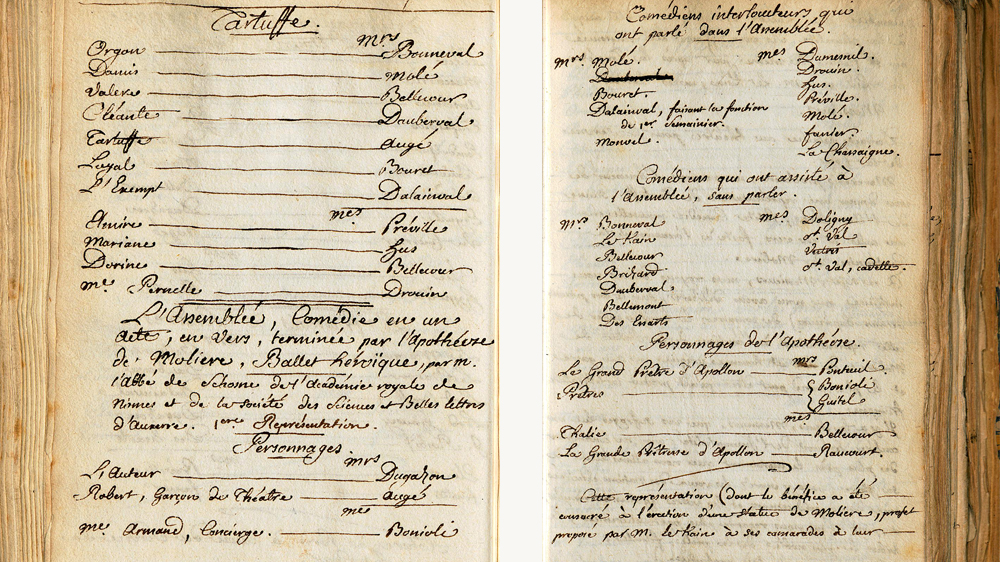 Tartuffe.
mrs
Orgon Bonneval
Damis Molé
Valere Bellecour
Cléante Dauberval
Tartuffe Augé
Loyal Bouret
L'Exempt Dalainval
mes
Elmire Préville
Mariane Hus
Dorine Bellecour
me Pernelle Drouin
L'Assemblée, Comédie en un
acte, en Vers, terminée par l'Apothéose
de Moliere, Ballet héroïque, par m.
l'abbé de Schosne de l'Academie royale de
Nismes et de la société des Sciences et Belles lettres
d'Auxerre. 1ere Représentation.
Personnages.
mrs
L'Auteur Dugazon
Robert, Garçon de Théatre Augé
mes
me Armand, Concierge. Bonioli
Comédiens interlocuteurs qui
ont parlé dans l'Assemblée.
mrs Molé.
Dauberval
Bouret.
Dalainval, faisant la fonction
de 1er Semainier.
Monvel.
mes Dumesnil.
Drouin.
Hus.
Préville.
Molé.
fanier.
La Chassaigne.
Comédiens qui ont assisté à
l'Assemblée, sans parler.
mrs Bonneval
Le Kain
Bellecour
Brizard
Dauberval
Bellemont
Des Essarts
mes Doligny
st Val
Vestris
st Val, cadette.
Personnages de l'Apothéose.
mrs
Le Grand Prêtre d'Apollon Ponteuil
Prêtres Bonioli
Guitel
mes
Thalie Bellecour
La Grande Prêtresse d'Apollon Raucourt.
Cette représentation (dont le bénéfice a été
consacré à l'érection d'une statue de Moliere, projet
proposé par M. Le Kain à ses camarades à leur